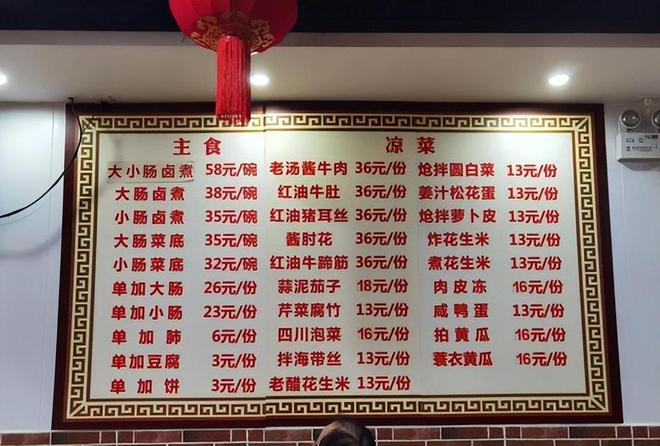 主食
大小肠卤煮 58元/碗
大肠卤煮 38元/碗
小肠卤煮 35元/碗
大肠菜底 35元/碗
小肠菜底 32元/碗
单加大肠 26元/份
单加小肠 23元/份
单加肺 6元/份
单加豆腐 3元/份
单加饼 3元/份
凉菜
老汤酱牛肉 36元/份
红油牛肚 36元/份
红油猪耳丝 36元/份
酱肘花 36元/份
红油牛蹄筋 36元/份
蒜泥茄子 18元/份
芹菜腐竹 13元/份
四川泡菜 16元/份
拌海带丝 13元/份
老醋花生米 13元/份
炝拌圆白菜 13元/份
姜汁松花蛋 13元/份
炝拌萝卜皮 13元/份
炸花生米 13元/份
煮花生米 13元/份
肉皮冻 16元/份
咸鸭蛋 13元/份
拍黄瓜 16元/份
蓑衣黄瓜 16元/份